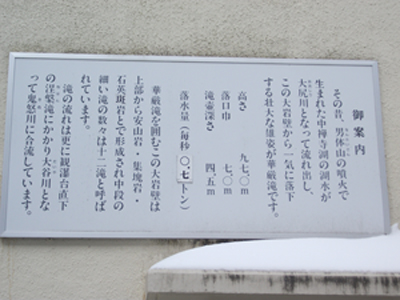 御案内
その昔、男体山の噴火で
生まれた中禅寺湖の湖水が
大尻川となって流れ出し、
この大岩壁から一気に落下
する壮大な雄姿が華厳滝です。
高さ 九七、〇m
落口巾 七、〇m
滝壷深さ 四、五m
落水量(毎秒〇.七トン)
華厳滝を囲むこの大岩壁は
上部から安山岩・集塊岩・
石英斑岩とで形成され中段の
細い滝の数々は十二滝と呼ば
れています。
滝の流れは更に観瀑台直下
の涅槃滝にかかり大谷川とな
って鬼怒川に合流しています。